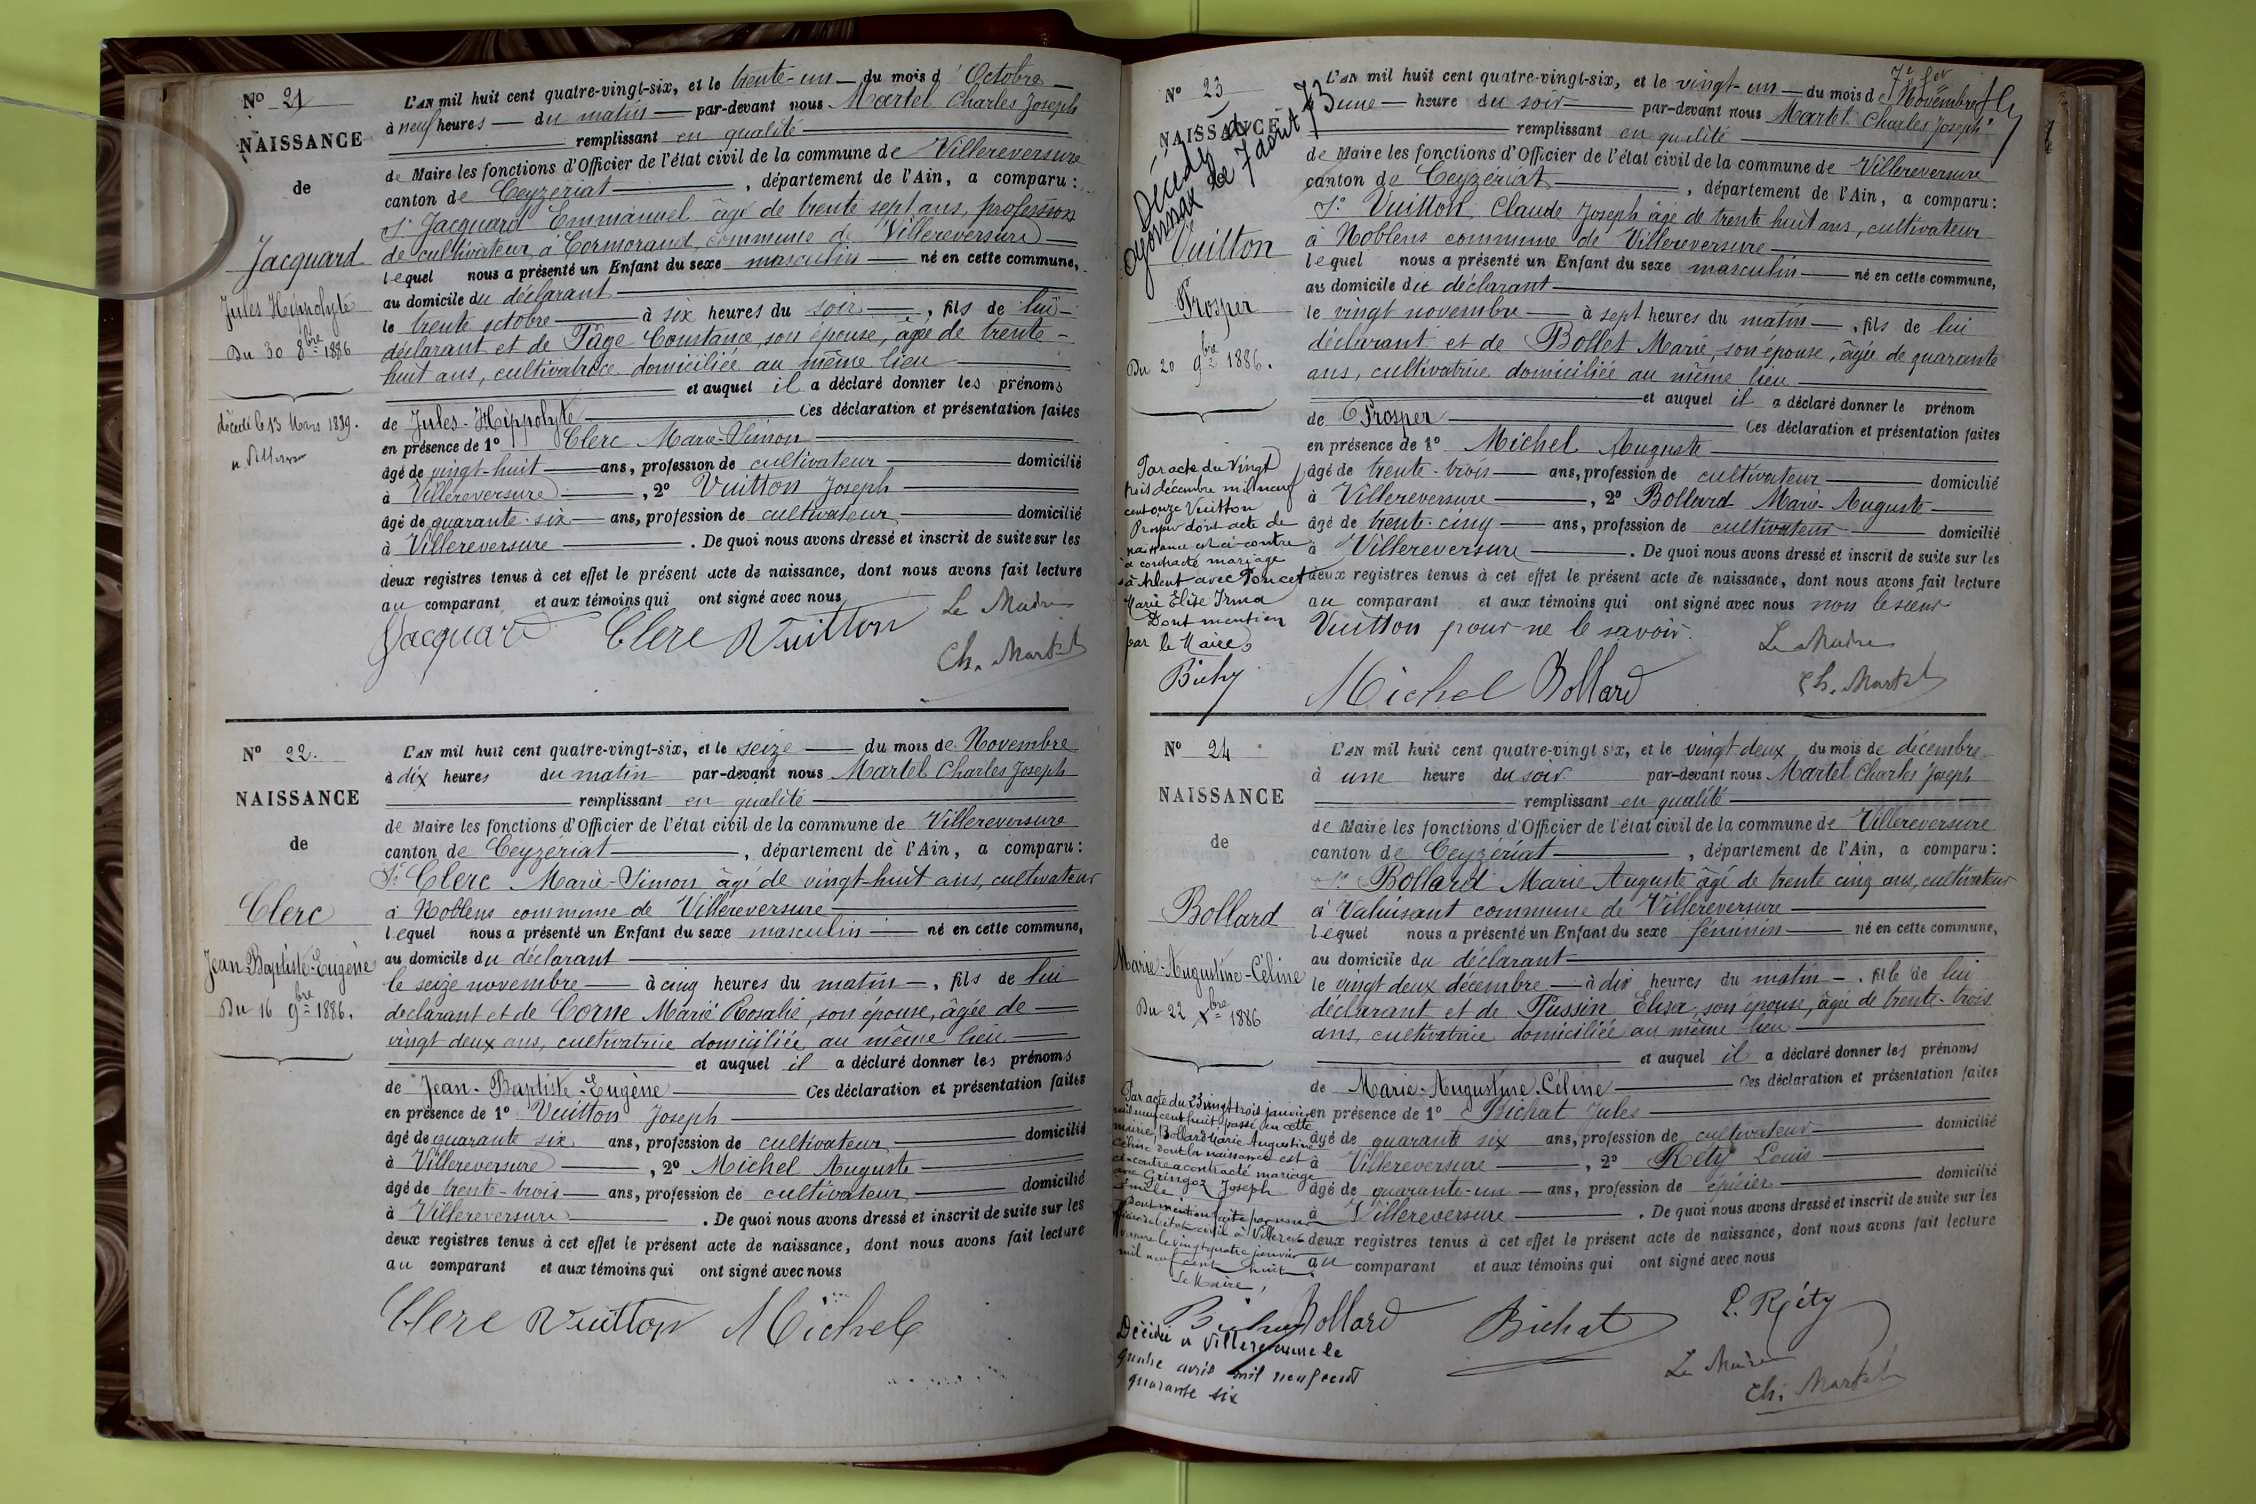 N° 21
NAISSANCE
de
Jacquard
Jules Hippolyte
Du 30 8bre 1886
décédé le 13 Mars 1889.
L'AN mil huit cent quatre-vingt-six, et le trente-un du mois d'Octobre
à neuf heures du matin par-devant nous Martel Charles Joseph
remplissant en qualité
de Maire les fonctions d'Officier de l'état civil de la commune de Villereversure
canton de Ceyzériat, département de l'Ain, a comparu :
Sr Jacquard Emmanuel âgé de trente sept ans, profession
de cultivateur à Cormorand commune de Villereversure
lequel nous a présenté un Enfant du sexe masculin né en cette commune,
au domicile du déclarant
le trente octobre à six heures du soir, fils de lui
déclarant et de Page Constance, son épouse, âgée de trente-
huit ans, cultivatrice domiciliée au même lieu
et auquel il a déclaré donner les prénoms
de Jules-Hippolyte Ces déclaration et présentation faites
en présence de 1° Clerc Marie-Simon
âgé de vingt-huit ans, profession de cultivateur domicilié
à Villereversure, 2° Vuitton Joseph
âgé de quarante-six ans, profession de cultivateur domicilié
à Villereversure. De quoi nous avons dressé et inscrit de suite sur les
deux registres tenus à cet effet le présent acte de naissance, dont nous avons fait lecture
au comparant et aux témoins qui ont signé avec nous
Jacquard Clerc Vuitton Le Maire
Ch. Martel
N° 22.
NAISSANCE
de
Clerc
Jean-Baptiste-Eugène
Du 16 9bre 1886.
L'AN mil huit cent quatre-vingt-six, et le seize du mois de Novembre
à dix heures du matin par-devant nous Martel Charles Joseph
remplissant en qualité
de Maire les fonctions d'Officier de l'état civil de la commune de Villereversure
canton de Ceyzériat, département de l'Ain, a comparu :
Sr Clerc Marie-Simon âgé de vingt-huit ans, cultivateur
à Noblens commune de Villereversure
lequel nous a présenté un Enfant du sexe masculin né en cette commune,
au domicile du déclarant
le seize novembre à cinq heures du matin, fils de lui
déclarant et de Corne Marie Rosalie, son épouse, âgée de
vingt deux ans, cultivatrice domiciliée au même lieu
et auquel il a déclaré donner les prénoms
de Jean-Baptiste-Eugène Ces déclaration et présentation faites
en présence de 1° Vuitton Joseph
âgé de quarante six ans, profession de cultivateur domicilié
à Villereversure, 2° Michel Auguste
âgé de trente-trois ans, profession de cultivateur domicilié
à Villereversure. De quoi nous avons dressé et inscrit de suite sur les
deux registres tenus à cet effet le présent acte de naissance, dont nous avons fait lecture
au comparant et aux témoins qui ont signé avec nous
Clerc Vuitton Michel
N° 23
NAISSANCE
Décédé à
Oyonnax le 7 août 73
Vuitton
Prosper
Du 20 9bre 1886.
Par acte du vingt
trois décembre mil neuf
cent onze Vuitton
Prosper dont acte de
naissance est ci-contre
a contracté mariage
avec Poncet
Marie Elise Irma
Dont mention
par le Maire
Bichy
L'AN mil huit cent quatre-vingt-six, et le vingt-un du mois de Novembre
à une heure du soir par-devant nous Martel Charles Joseph
remplissant en qualité
de Maire les fonctions d'Officier de l'état civil de la commune de Villereversure
canton de Ceyzériat, département de l'Ain, a comparu :
Sr Vuitton, Claude Joseph âgé de trente huit ans, cultivateur
à Noblens commune de Villereversure
lequel nous a présenté un Enfant du sexe masculin né en cette commune,
au domicile du déclarant
le vingt novembre à sept heures du matin, fils de lui
déclarant et de Bollet Marie, son épouse, âgée de quarante
ans, cultivatrice domiciliée au même lieu
et auquel il a déclaré donner le prénom
de Prosper Ces déclaration et présentation faites
en présence de 1° Michel Auguste
âgé de trente-trois ans, profession de cultivateur domicilié
à Villereversure, 2° Bollard Marie-Auguste
âgé de trente-cinq ans, profession de cultivateur domicilié
à Villereversure. De quoi nous avons dressé et inscrit de suite sur les
deux registres tenus à cet effet le présent acte de naissance, dont nous avons fait lecture
au comparant et aux témoins qui ont signé avec nous non le sieur
Vuitton pour ne le savoir.
Le Maire
Michel Bollard Ch. Martel
N° 24
NAISSANCE
de
Bollard
Marie-Augustine-Céline
Du 22 Xbre 1886
Par acte du 23 vingt trois janvier
mil neuf cent huit passé en cette
mairie, Bollard Marie Augustine
Céline dont la naissance est
ci-contre a contracté mariage
avec Gringoz Joseph
Emile
Dont mention faite par nous
officier de l'état civil à Villere
versure le vingt quatre janvier
mil neuf cent huit
Le Maire,
Bichy
Décédée à Villereversure le
quatre avril mil neuf cent
quarante six
L'AN mil huit cent quatre-vingt six, et le vingt deux du mois de décembre
à une heure du soir par-devant nous Martel Charles Joseph
remplissant en qualité
de Maire les fonctions d'Officier de l'état civil de la commune de Villereversure
canton de Ceyzériat, département de l'Ain, a comparu :
Sr Bollard Marie Auguste âgé de trente cinq ans, cultivateur
à Valuisant commune de Villereversure
lequel nous a présenté un Enfant du sexe féminin né en cette commune,
au domicile du déclarant
le vingt deux décembre à dix heures du matin, fille de lui
déclarant et de Pussin Elisa, son épouse, âgée de trente-trois
ans, cultivatrice domiciliée au même lieu
et auquel il a déclaré donner les prénoms
de Marie-Augustine-Céline Ces déclaration et présentation faites
en présence de 1° Bichat Jules
âgé de quarante six ans, profession de cultivateur domicilié
à Villereversure, 2° Réty Louis
âgé de quarante-un ans, profession de épicier domicilié
à Villereversure. De quoi nous avons dressé et inscrit de suite sur les
deux registres tenus à cet effet le présent acte de naissance, dont nous avons fait lecture
au comparant et aux témoins qui ont signé avec nous
Bollard Bichat L. Réty
Le Maire
Ch. Martel